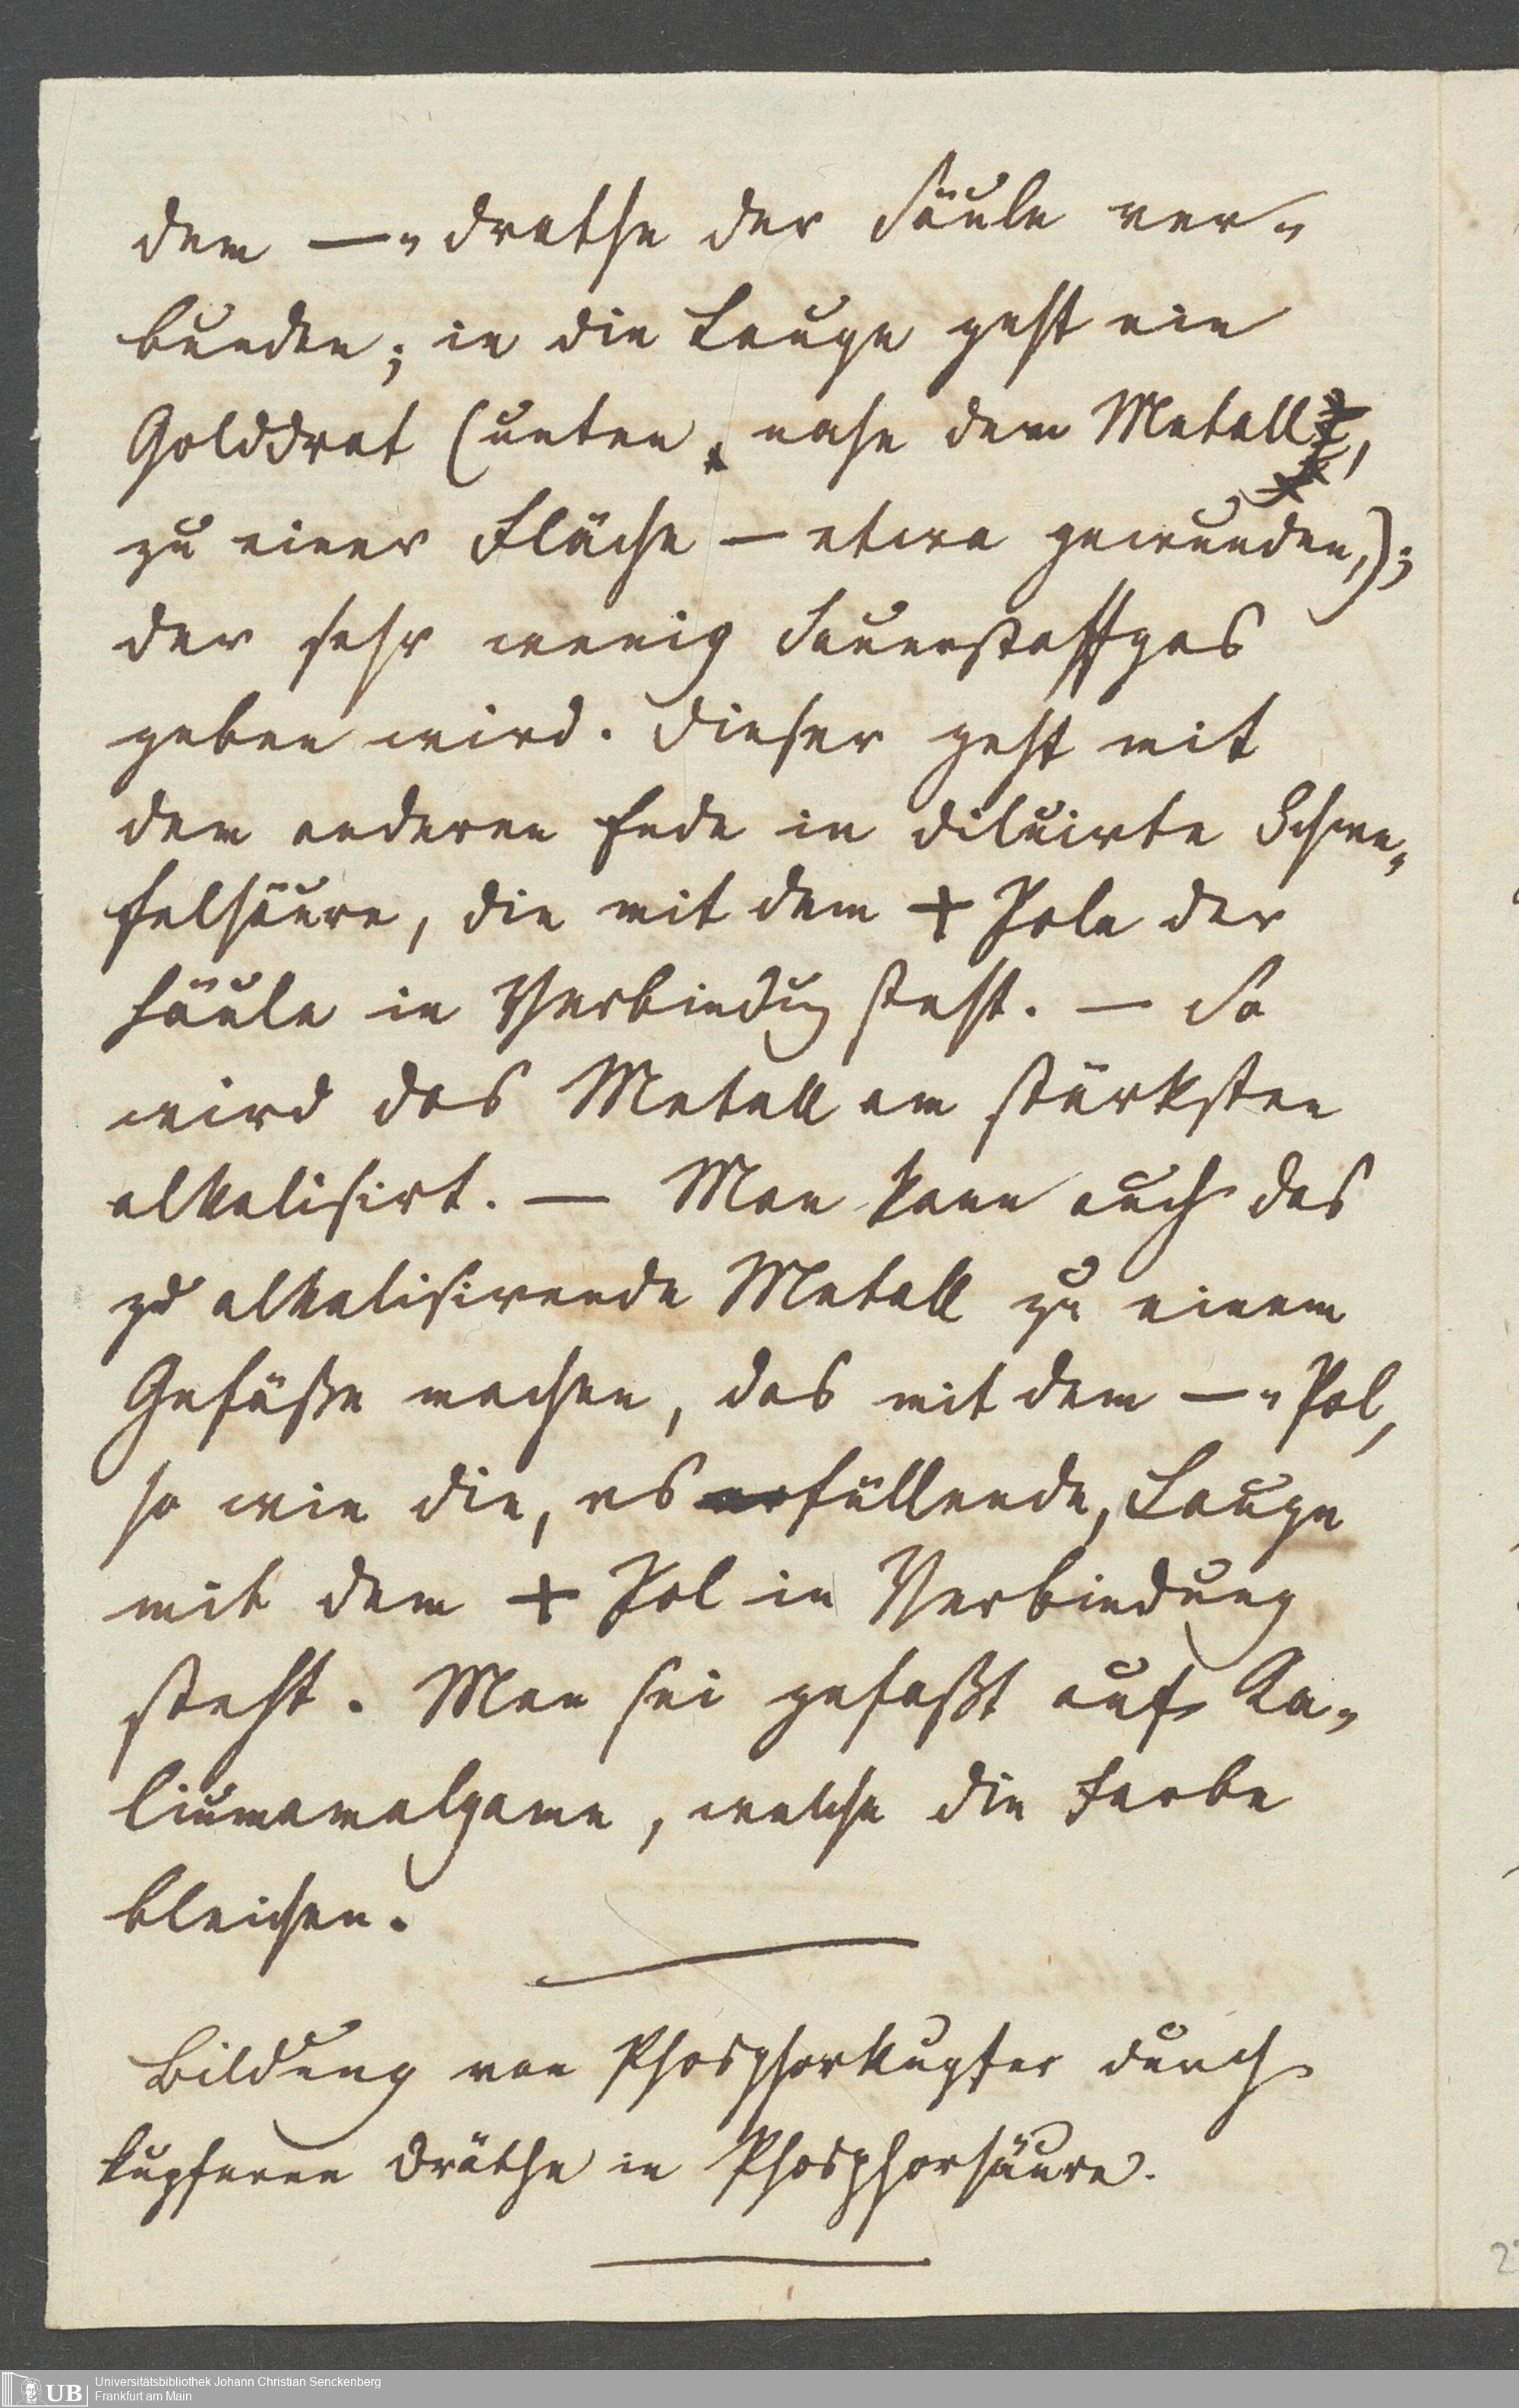 dem —-drathe der Säule ver-
bunden; in die Lauge geht ein
Golddrat (unten, nahe dem Metall,
zu einer Fläche – etwa gewunden,);
der sehr wenig Sauerstoffgas
geben wird. Dieser geht mit
dem anderen Ende in diluirte Schwe-
felsäure, die mit dem + Pole der
Säule in Verbindung steht. — So
wird das Metall am stärksten
alkalisirt. — Man kann auch das
zu alkalisirende Metall zu einem
Gefäße machen, das mit dem —-Pol,
so wie die, es erfüllende, Lauge
mit dem + Pol in Verbindung
steht. Man sei gefaßt auf Ka-
liumamalgame, welche die Farbe
bleichen.
Bildung von Phosphorkupfer durch
kupferne Dräthe in Phosphorsäure.
UB Universitätsbibliothek Johann Christian Senckenberg
Frankfurt am Main